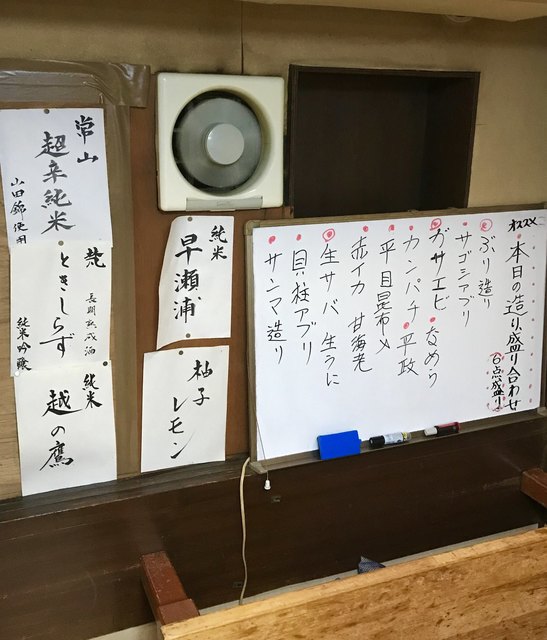 オススメ
本日の造り盛り合わせ
6点盛り
ぶり造り
サゴシアブリ
ガサエビ なめろう
カンパチ 平政
平目昆布〆
赤イカ 甘海老
生サバ 生うに
貝柱アブリ
サンマ造り
純米
早瀬浦
柚子
レモン
常山
超辛純米
山田錦使用
梵
長期熟成酒
ときしらず
純米吟醸
純米
越の鷹